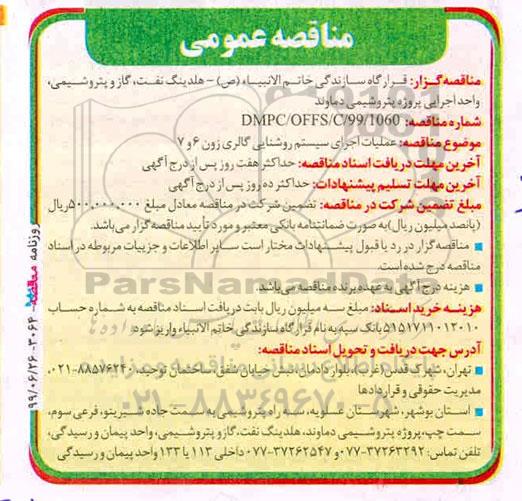 مناقصه عمومی
مناقصه گزار: قرارگاه سازندگی خاتم الانبیاء (ص) – هلدینگ نفت، گاز و پتروشیمی،
واحد اجرایی پروژه پتروشیمی دماوند
شماره مناقصه: DMPC/OFFS/C/99/1060
موضوع مناقصه: عملیات اجرای سیستم روشنایی گالری زون ۶ و ۷
آخرین مهلت دریافت اسناد مناقصه: حداکثر هفت روز پس از درج آگهی
آخرین مهلت تسلیم پیشنهادات: حداکثر ده روز پس از درج آگهی
مبلغ تضمین شرکت در مناقصه: تضمین شرکت در مناقصه معادل مبلغ ۵۰۰.۰۰۰.۰۰۰ریال
(پانصد میلیون ریال)به صورت ضمانتنامه بانکی معتبر و مورد تأیید مناقصه گزار می‌باشد.
مناقصه گزار در رد یا قبول پیشنهادات مختار است سایر اطلاعات و جزییات مربوطه در اسناد
مناقصه درج شده است.
هزینه درج آگهی به عهده برنده مناقصه می‌باشد.
هزینه خرید اسناد: مبلغ سه میلیون ریال بابت دریافت اسناد مناقصه به شماره حساب
بانک سپه به نام قرارگاه سازندگی خاتم الانبیاء واریز شود
آدرس جهت دریافت و تحویل اسناد مناقصه:
تهران، شهرک قدس (غرب)، بلوار دادمان، نبش خیابان شفق، ساختمان توحید، ۸۸۵۷۶۲۴۰-۰۲۱،
مدیریت حقوقی و قراردادها
استان بوشهر، شهرستان عسلویه، سه راه پتروشیمی به سمت جاده شیرینو، فرعی سوم،
سمت چپ،پروژه پتروشیمی دماوند، هلدینگ نفت، گاز و پتروشیمی، واحد پیمان و رسیدگی،
تلفن تماس: ۳۷۲۶۳۲۹۲-۰۷۷ و ۳۷۲۶۲۵۴۷-۰۷۷ داخلی ۱۱۳ یا ۱۳۳ واحد پیمان و رسیدگی
روزنامه مناقصه- ۳۰۶۴- ۹۹/۰۶/۲۶
ParsNamadData
۰۲۱-۸۸۳۴۹۶۷۰-۵